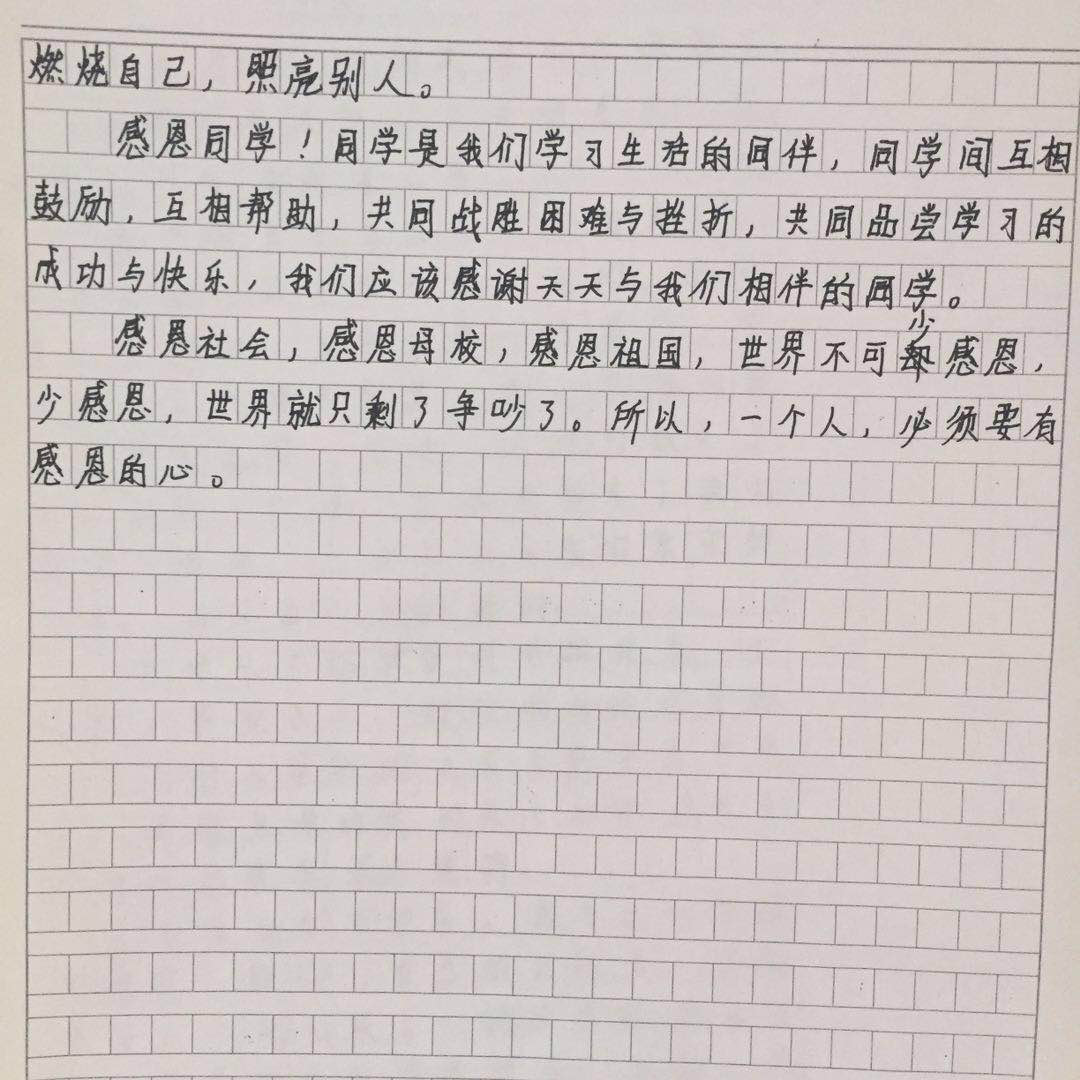 燃烧自己，照亮别人。
感恩同学！同学是我们学习生活的同伴，同学间互相
鼓励，互相帮助，共同战胜困难与挫折，共同品尝学习的
成功与快乐，我们应该感谢天天与我们相伴的同学。
感恩社会，感恩母校，感恩祖国，世界不可少感恩，
少感恩，世界就只剩了争吵了。所以，一个人，必须要有
感恩的心。